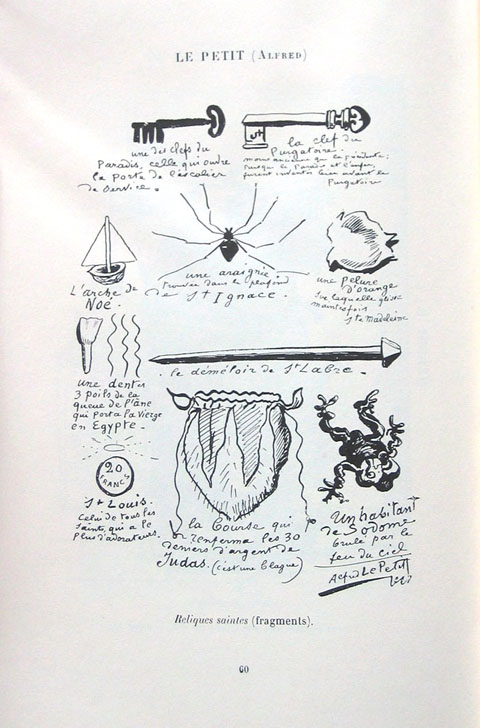 LE PETIT (ALFRED)
une des clefs du
Paradis, celle qui ouvre
la porte de l'escalier
de service.
la clef du
Purgatoire....
moins ancienne que la précédente;
puisque le Paradis et l'enfer
furent inventés bien avant le
Purgatoire
L'arche de
Noé.
une araignée
trouvée dans le plafond
de St Ignace.
une pelure
d'orange
sur laquelle glissa
maintefois
Ste Madeleine
une dent et
3 poils de la
queue de l'âne
qui porta la Vierge
en Egypte.
le démêloir de St Labre.
20
FRANCS
St Louis.
Celui de tous les
Saints, qui a le
plus d'adorateurs.
la Bourse qui
renferma les 30
deniers d'argent de
Judas. (c'est une blague)
Un habitant
de Sodome
brulé par le
feu du ciel
Alfred Le Petit
Reliques saintes (fragments).
60